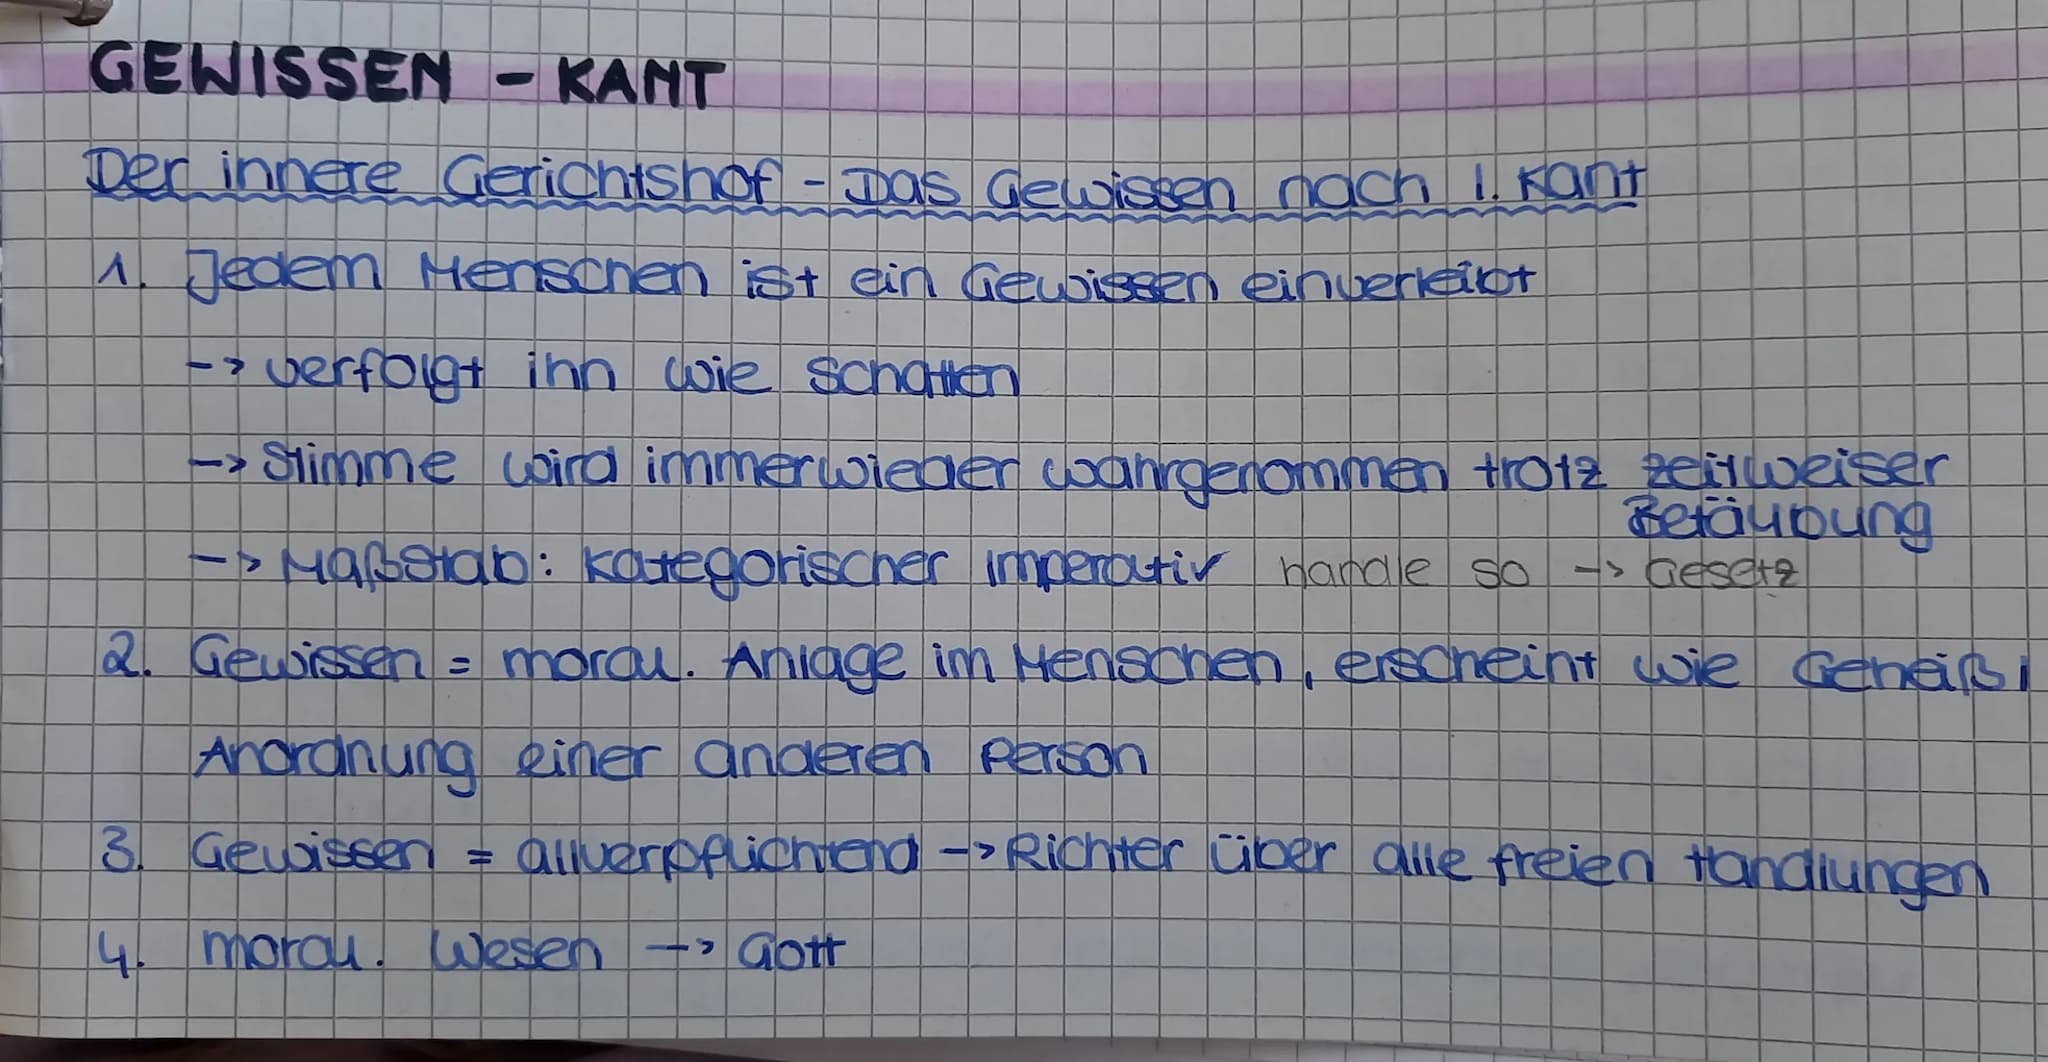 GEWISSEN - KANT
Der innere Gerichtshof - Das Gewissen nach I. Kant
1. Jedem Menschen ist ein Gewissen einverleibt
-> verfolgt ihn wie Schatten
-> Stimme wird immer wieder wahrgenommen trotz zeitweiser
Betäubung
-> Maßstab: Kategorischer Imperativ handle so -> Gesetz
2. Gewissen = moral. Anlage im Menschen, erscheint wie Geheiß/
Anordnung einer anderen Person
3. Gewissen = allverpflichtend -> Richter über alle freien Handlungen
4. moral. Wesen -> Gott